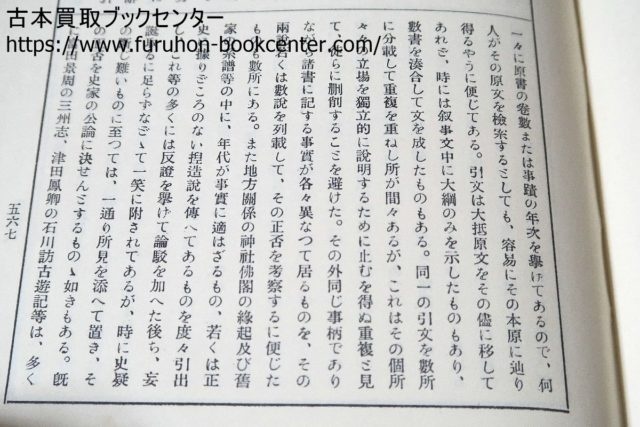 古本買取ブックセンター
https://www.furuhon-bookcenter.com/
一々に原書の卷數または事蹟の年次を擧げてあるので、何
人がその原文を檢索するとしても、容易にその本原に辿り
得るやうに便じてある。引文は大抵原文をその儘に移して
あれど、時には叙事文中に大綱のみを示したものもあり、
數書を湊合して文を成したものもある。同一の引文を數所
に分載して重複を重ねし所が間々あるが、これはその個所
々々の立場を獨立的に說明するために止むを得ぬ重複と見
て、徒らに刪削することを避けた。その外同じ事柄であり
ながら諸書に記する事實が各々異なつて居るものを、その
兩說若くは數說を列載して、その正否を考察するに便じた
ものも數所にある。また地方關係の神社佛閣の緣起及び舊
家の系譜等の中に、年代が事實に適はざるもの、若くは正
史に據りどころのない揑造說を傳へてあるものを度々引出
し、これ等の多くには反證を擧げて論駁を加へた後ち、妄
誕取るに足らずなどゝて一笑に附されてあるが、時に史疑
の決し難いものに至つては、一通り所見を添へて置き、そ
の正否を史家の公論に決せんとするものゝ如きもある。旣
に富田景周の三州志、津田鳳卿の石川訪古遊記等は、多く
五六七